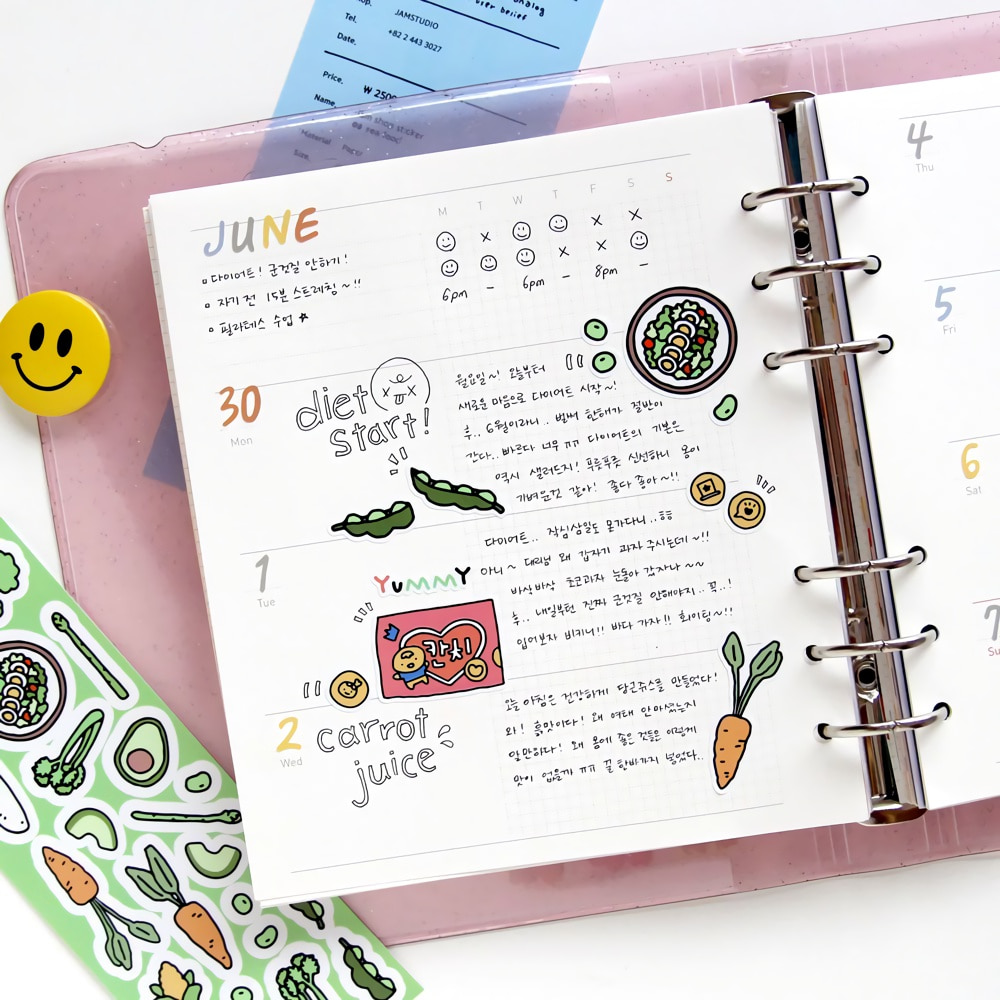 JAMSTUDIO
Tel.
+82 2 443 3027
Date.
Price.
₩ 2500
Name.
Material Paper
Size.
JUNE
M T W T F S S
다이어트! 군것질 안하기!
자기 전 15분 스트레칭~!!
필라테스 수업
6pm - 6pm - 8pm -
30
Mon
diet
start!
월요일~! 오늘부터
새로운 마음으로 다이어트 시작~!
후.. 6월이라니.. 벌써 한해가 절반이
간다.. 빠르다 너무 ㅠㅠ 다이어트의 기본은
역시 샐러드지! 푸릇푸릇 신선하니 몸이
가벼운것 같아! 좋다 좋아~!!
1
Tue
YUMMY
칸치
다이어트.. 작심삼일도 못가다니..ㅎㅎ
아니~ 대리님 왜 갑자기 과자 주시는데~!!
바삭바삭 초코과자 눈돌아 갑자나~~
후.. 내일부턴 진짜 군것질 안해야지.. 꼭..!
입어보자 비키니!! 바다 가자!! 화이팅~!!
2
Wed
carrot
juice
오늘 아침은 건강하게 당근쥬스를 만들었다!
와! 흙맛이다! 왜 여태 안마셨는지
알만하다! 왜 몸에 좋은 것들은 이렇게
맛이 없을까 ㅠㅠ 꿀 한바가지 넣었다..
4
Thu
5
Fri
6
Sat
7